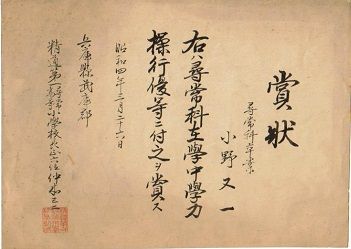 賞狀
尋常科卒業
小野又一
右ハ尋常科在學中學力
操行優等ニ付之ヲ賞ス
昭和四年三月二十六日
兵庫縣武庫郡
精道第二尋常高等小學校長正六位